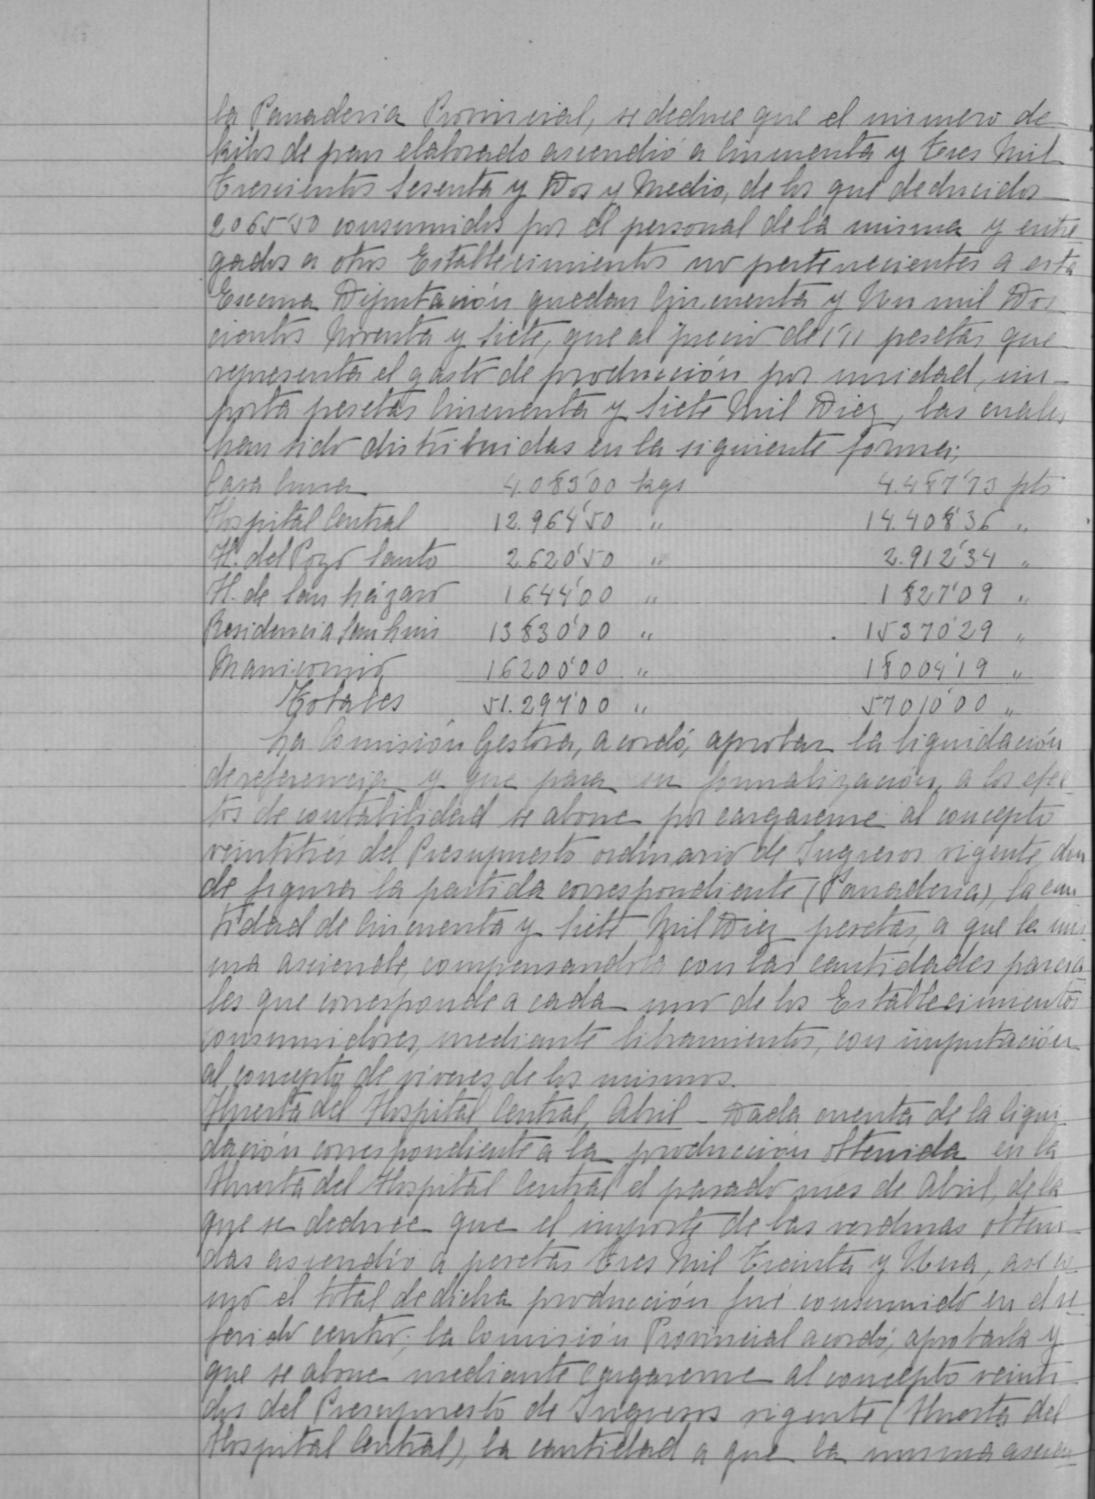 la Panadería Provincial, se deduce que el número de
kilos de pan elaborado ascendió a Cincuenta y Tres Mil
Trescientos Sesenta y Dos y Medio, de los que deducidos
2065'50 consumidos por el personal de la misma y entre
gados a otros Establecimientos no pertenecientes a esta
Excma Diputación quedan Cincuenta y Un mil Dos
cientos Noventa y Siete, que al precio de 1'11 pesetas que
representa el gasto de producción por unidad, im-
porta pesetas Cincuenta y Siete Mil Diez, las cuales
han sido distribuidas en la siguiente forma;
Casa Cuna 4.083'00 kgs 4.487'73 pts
Hospital Central 12.964'50 " 14.408'36 "
H. del Pozo Santo 2.620'50 " 2.912'34 "
H. de San Lázaro 1644'00 " 1827'09 "
Residencia San Luis 13830'00 " 15370'29 "
Manicomio 16200'00 " 18004'19 "
Totales 51.297'00 " 57010'00 "
La Comisión Gestora, acordó, aprobar la liquidación
de referencia y que para su formalización a los efec-
tos de contabilidad se abone por cargareme al concepto
veintitrés del Presupuesto ordinario de Ingresos vigente, don
de figura la partida correspondiente (Panadería), la can
tidad de Cincuenta y Siete Mil Diez pesetas, a que la mis-
ma asciende, compensandola con las cantidades parcia
les que corresponde a cada uno de los Establecimientos
consumidores, mediante libramientos, con imputación
al concepto de víveres de los mismos.
Huerta del Hospital Central, Abril - Dada cuenta de la liqui
dación correspondiente a la producción obtenida en la
Huerta del Hospital Central el pasado mes de Abril, de la
que se deduce que el importe de las verduras obteni-
das ascendió a pesetas Tres Mil Treinta y Una, así co-
mo el total de dicha producción fué consumido en el re-
ferido centro; la Comisión Provincial acordó, aprobarla y
que se abone mediante cargareme al concepto veinti-
dos del Presupuesto de Ingresos vigente (Huerta del
Hospital Central), la cantidad a que la misma ascien